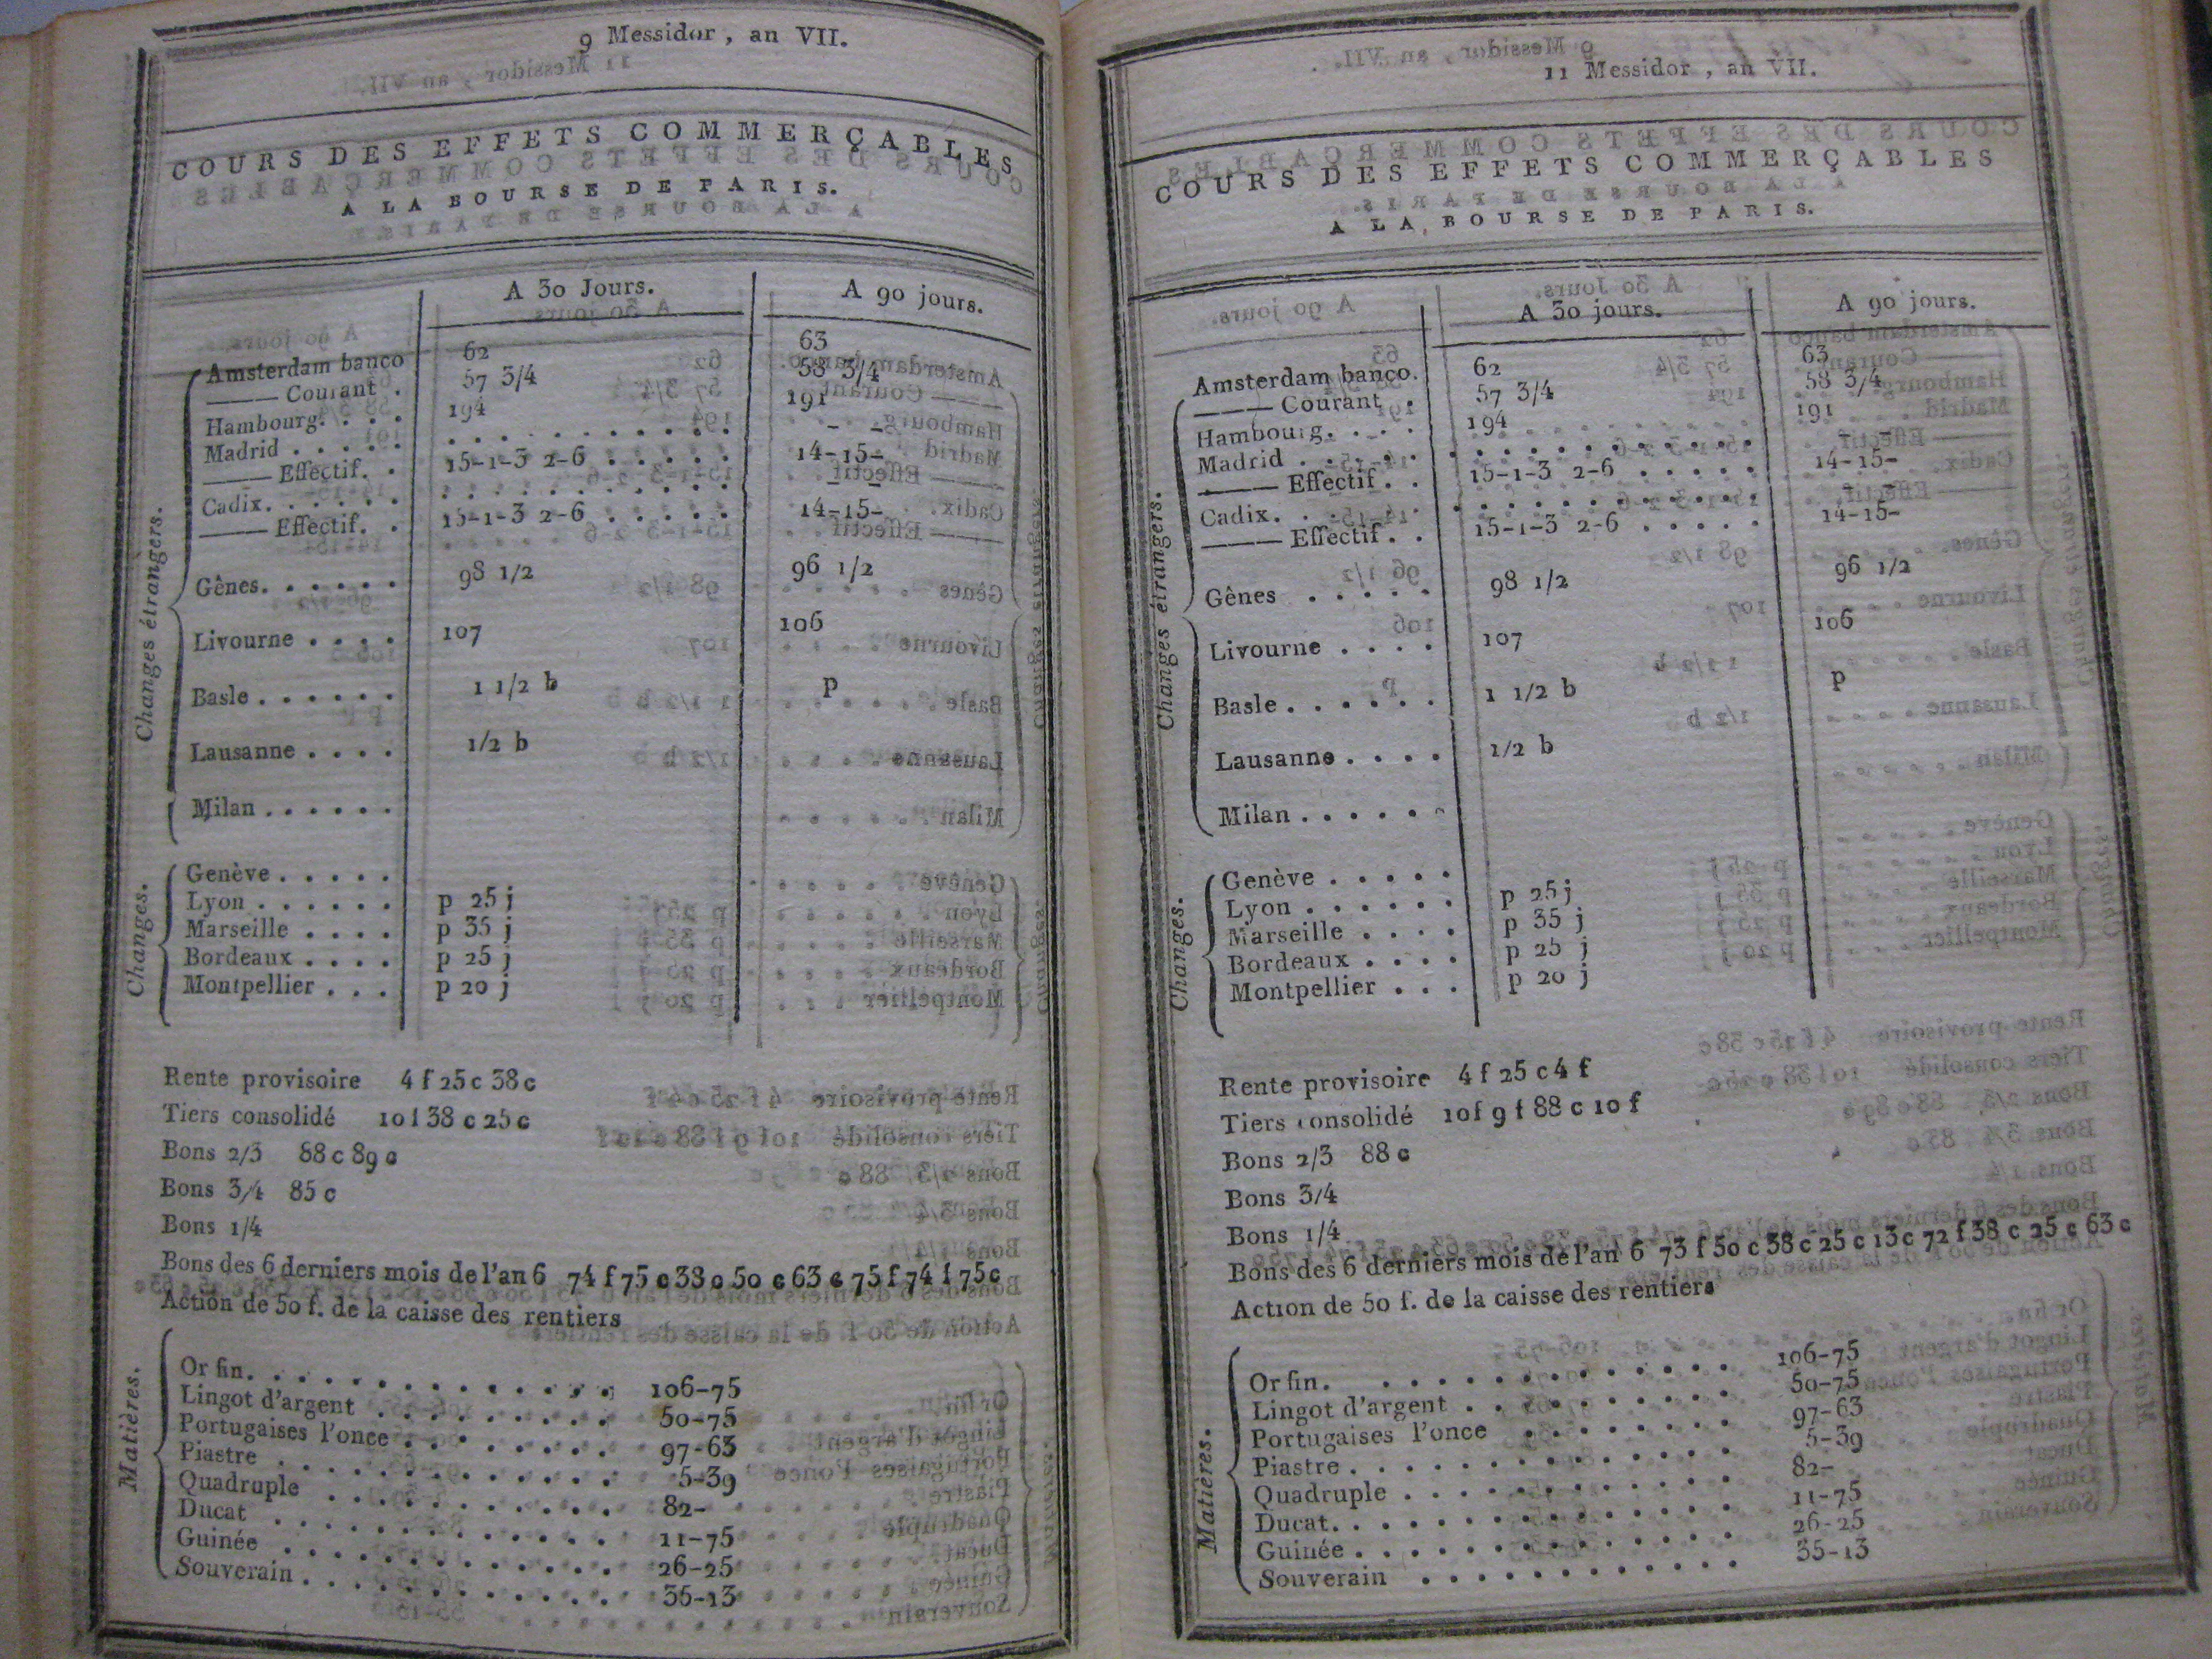 9 Messidor, an VII.
COURS DES EFFETS COMMERÇABLES
A LA BOURSE DE PARIS.
A 30 Jours. A 90 jours.
Changes étrangers.
Amsterdam banco 62 63
——— Courant . 57 3/4 58 3/4
Hambourg. . . . 194 191
Madrid . . . . . . . . . . . . . . . - -
——— Effectif. . 15-1-3 2-6 . . . . . 14-15-
Cadix. . . . . . . . . . . . . . . . - -
——— Effectif. . 15-1-3 2-6 . . . . . 14-15-
Gênes. . . . . . 98 1/2 96 1/2
Livourne . . . . 107 106
Basle . . . . . . 1 1/2 b p
Lausanne . . . . 1/2 b
Milan . . . . . .
Changes.
Genève . . . . .
Lyon . . . . . . p 25 j
Marseille . . . . p 35 j
Bordeaux . . . . p 25 j
Montpellier . . . p 20 j
Rente provisoire 4 f 25 c 38 c
Tiers consolidé 10 f 38 c 25 c
Bons 2/3 88 c 89 c
Bons 3/4 85 c
Bons 1/4
Bons des 6 derniers mois de l'an 6 74 f 75 c 38 c 50 c 63 c 75 f 74 f 75 c
Action de 50 f. de la caisse des rentiers
Matières.
Or fin. . . . . . . . . . . . . . 106-75
Lingot d'argent . . . . . . . . . 50-75
Portugaises l'once . . . . . . . . 97-63
Piastre . . . . . . . . . . . . . 5-39
Quadruple . . . . . . . . . . . 82-
Ducat . . . . . . . . . . . . . 11-75
Guinée . . . . . . . . . . . . . 26-25
Souverain . . . . . . . . . . . . 35-13
11 Messidor, an VII.
COURS DES EFFETS COMMERÇABLES
A LA BOURSE DE PARIS.
A 30 jours. A 90 jours.
Changes étrangers.
Amsterdam banco. 62 63
——— Courant . 57 3/4 58 3/4
Hambourg. . . . 194 191
Madrid . . . . . . . . . . . . . . .
——— Effectif . . 15-1-3 2-6 . . . . . 14-15-
Cadix. . . . . . . . . . . . . . . .
——— Effectif . . 15-1-3 2-6 . . . . . 14-15-
Gênes . . . . . 98 1/2 96 1/2
Livourne . . . . 107 106
Basle . . . . . . 1 1/2 b p
Lausanne . . . . 1/2 b
Milan . . . . . .
Changes.
Genève . . . . .
Lyon . . . . . . p 25 j
Marseille . . . . p 35 j
Bordeaux . . . . p 25 j
Montpellier . . . p 20 j
Rente provisoire 4 f 25 c 4 f
Tiers consolidé 10 f 9 f 88 c 10 f
Bons 2/3 88 c
Bons 3/4
Bons 1/4
Bons des 6 derniers mois de l'an 6 73 f 50 c 38 c 25 c 13 c 72 f 38 c 25 c 63 c
Action de 50 f. de la caisse des rentiers
Matières.
Or fin. . . . . . . . . . . . . 106-75
Lingot d'argent . . . . . . . . . 50-75
Portugaises l'once . . . . . . . . 97-63
Piastre . . . . . . . . . . . . . 5-39
Quadruple . . . . . . . . . . . 82-
Ducat. . . . . . . . . . . . . . 11-75
Guinée . . . . . . . . . . . . . 26-25
Souverain . . . . . . . . . . . . 35-13